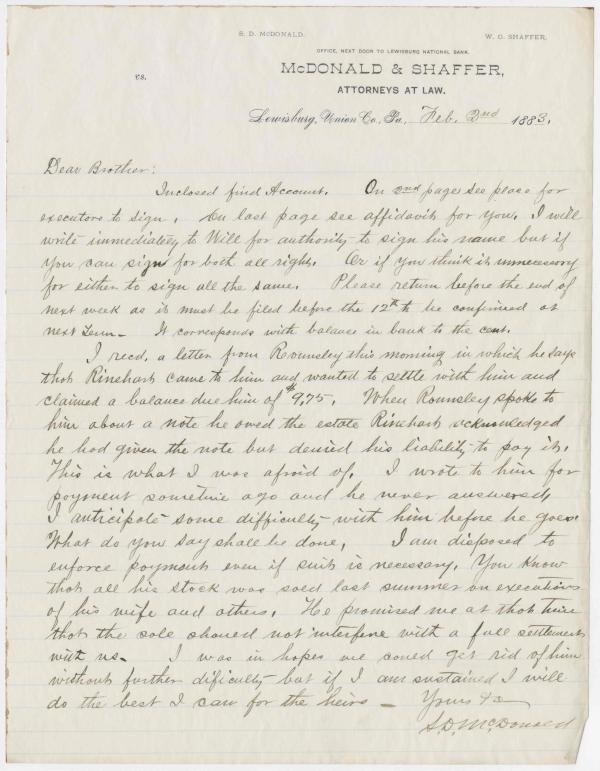 S. D. McDONALD.
W. O. SHAFFER.
OFFICE, NEXT DOOR TO LEWISBURG NATIONAL BANK.
McDONALD & SHAFFER,
vs.
ATTORNEYS AT LAW.
Lewisburg, Union Co., Pa., Feb. 2nd 1883.
Dear Brother:
Inclosed find Account. On 2nd page see place for
executors to sign. On last page see affidavit for you. I will
write immediately to Will for authority to sign his name but if
you can sign for both all right. Or if you think it unnecessary
for either to sign all the same. Please return before the end of
next week as it must be filed before the 12th to be confirmed at
next Term - It corresponds with balance in bank to the cent.
I recd. a letter from Rounsley this morning in which he says
that Rinehart came to him and wanted to settle with him and
claimed a balance due him of $9.75. When Rounsley spoke to
him about a note he owed the estate Rinehart acknowledged
he had given the note but denied his liability to pay it.
This is what I was afraid of. I wrote to him for
payment sometime ago and he never answered.
I anticipate some difficulty with him before he goes.
What do you say shall be done. I am disposed to
enforce payment even if suit is necessary. You know
that all his stock was sold last summer on executions
of his wife and others. He promised me at that time
that the sale should not interfere with a full settlement
with us - I was in hopes we could get rid of him
without further difficulty but if I am sustained I will
do the best I can for the heirs - Yours &c
S. D. McDonald